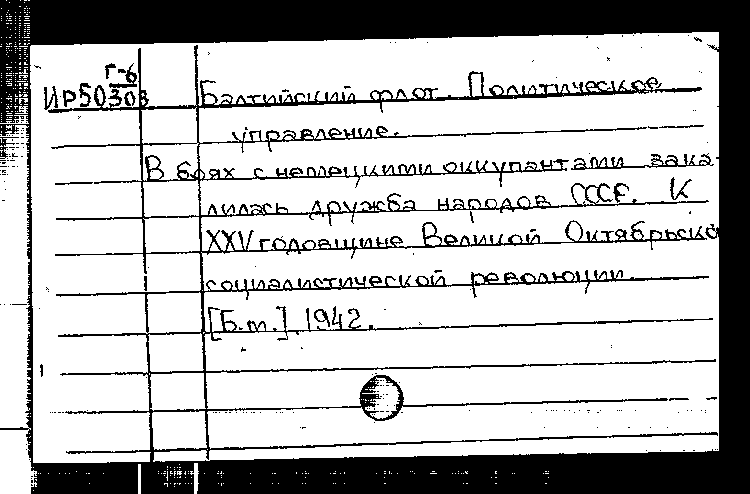 Г-6
ИР50303 Балтийский флот. Политическое
управление.
В боях с немецкими оккупантами зака-
лилась дружба народов СССР. К
XXV годовщине Великой Октябрьской
социалистической революции.
[Б.м.]. 1942.